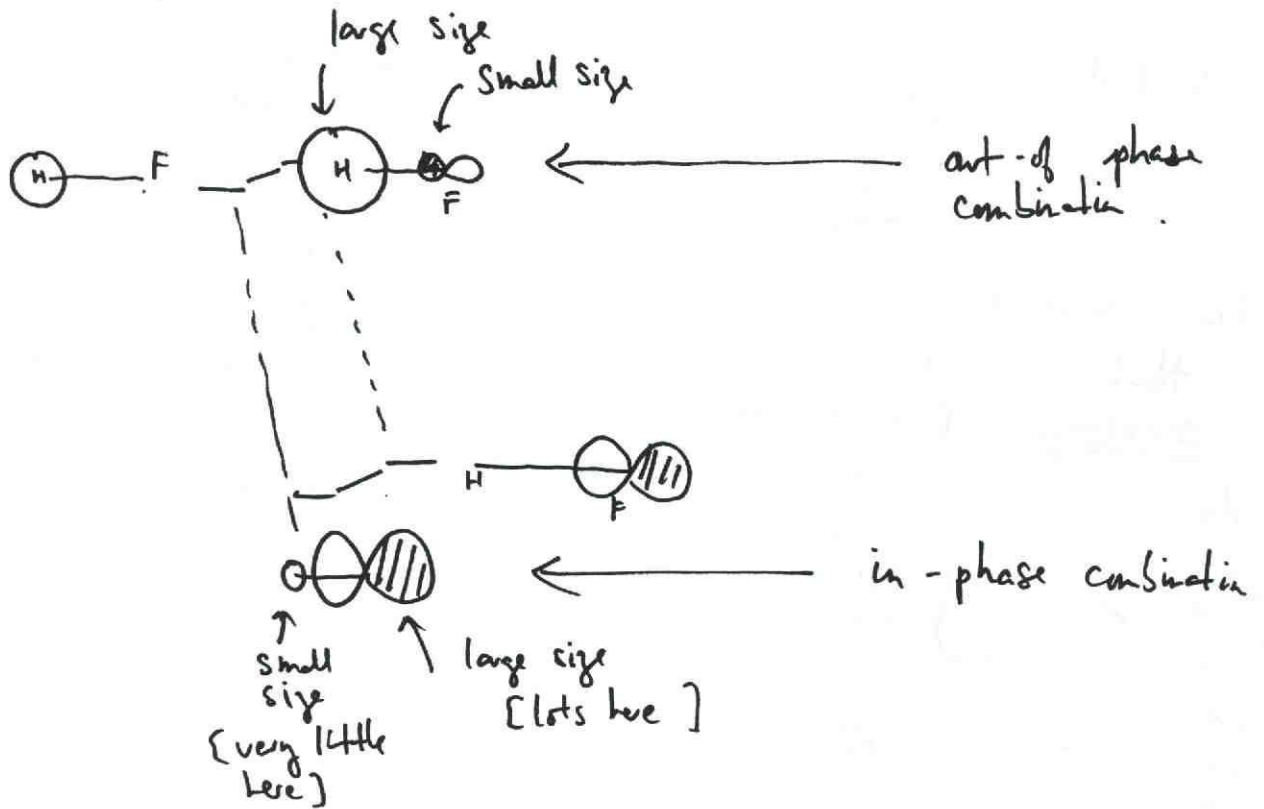 large size
small size
H
F
H
F
out-of phase
combinatin.
H
F
in-phase combinatin
small
size
[very little
here]
large size
[lots here]